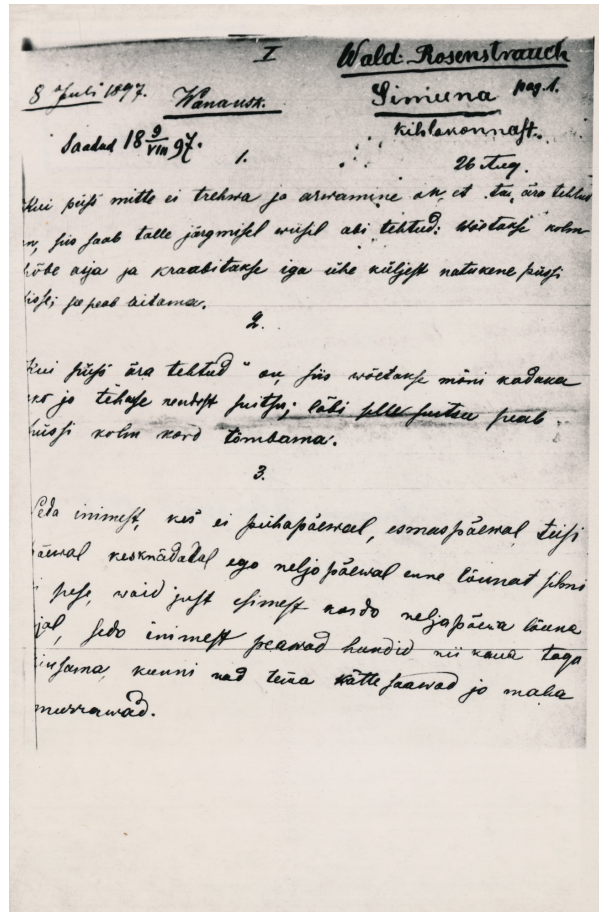 I
Wald: Rosenstrauch
8 Juli 1897. Wanausk. Simuna pag. 1.
Saadud 18 9/VIII 97. kihlakonnast.
1. 26 Aug.
Kui püss mitte ei trehwa ja arwamine on, et ta „ära tehtud
on, siis saab talle järgmisel wiisel abi tehtud: wõetakse kolm
hõbe asja ja kraabitakse iga ühe küljest natukene püssi
sisse; see peab aitama.
2.
Kui püss ära tehtud" on, siis wõetakse mõni kadaka
oks ja tehase nendest suitsu; läbi selle suitsu peab
püssi kolm kord tõmbama.
3.
Seda inimest, kes ei pühapäewal, esmaspäewal, teisi
päewal kesknädalal ega neljapäewal enne lõunat silmi
ei pese, waid just esimest korda neljapäewa lõuna
ajal, seda inimest peawad hundid nii kaua taga
kiusama, kunni nad tema kätte saawad ja maha
murrawad.